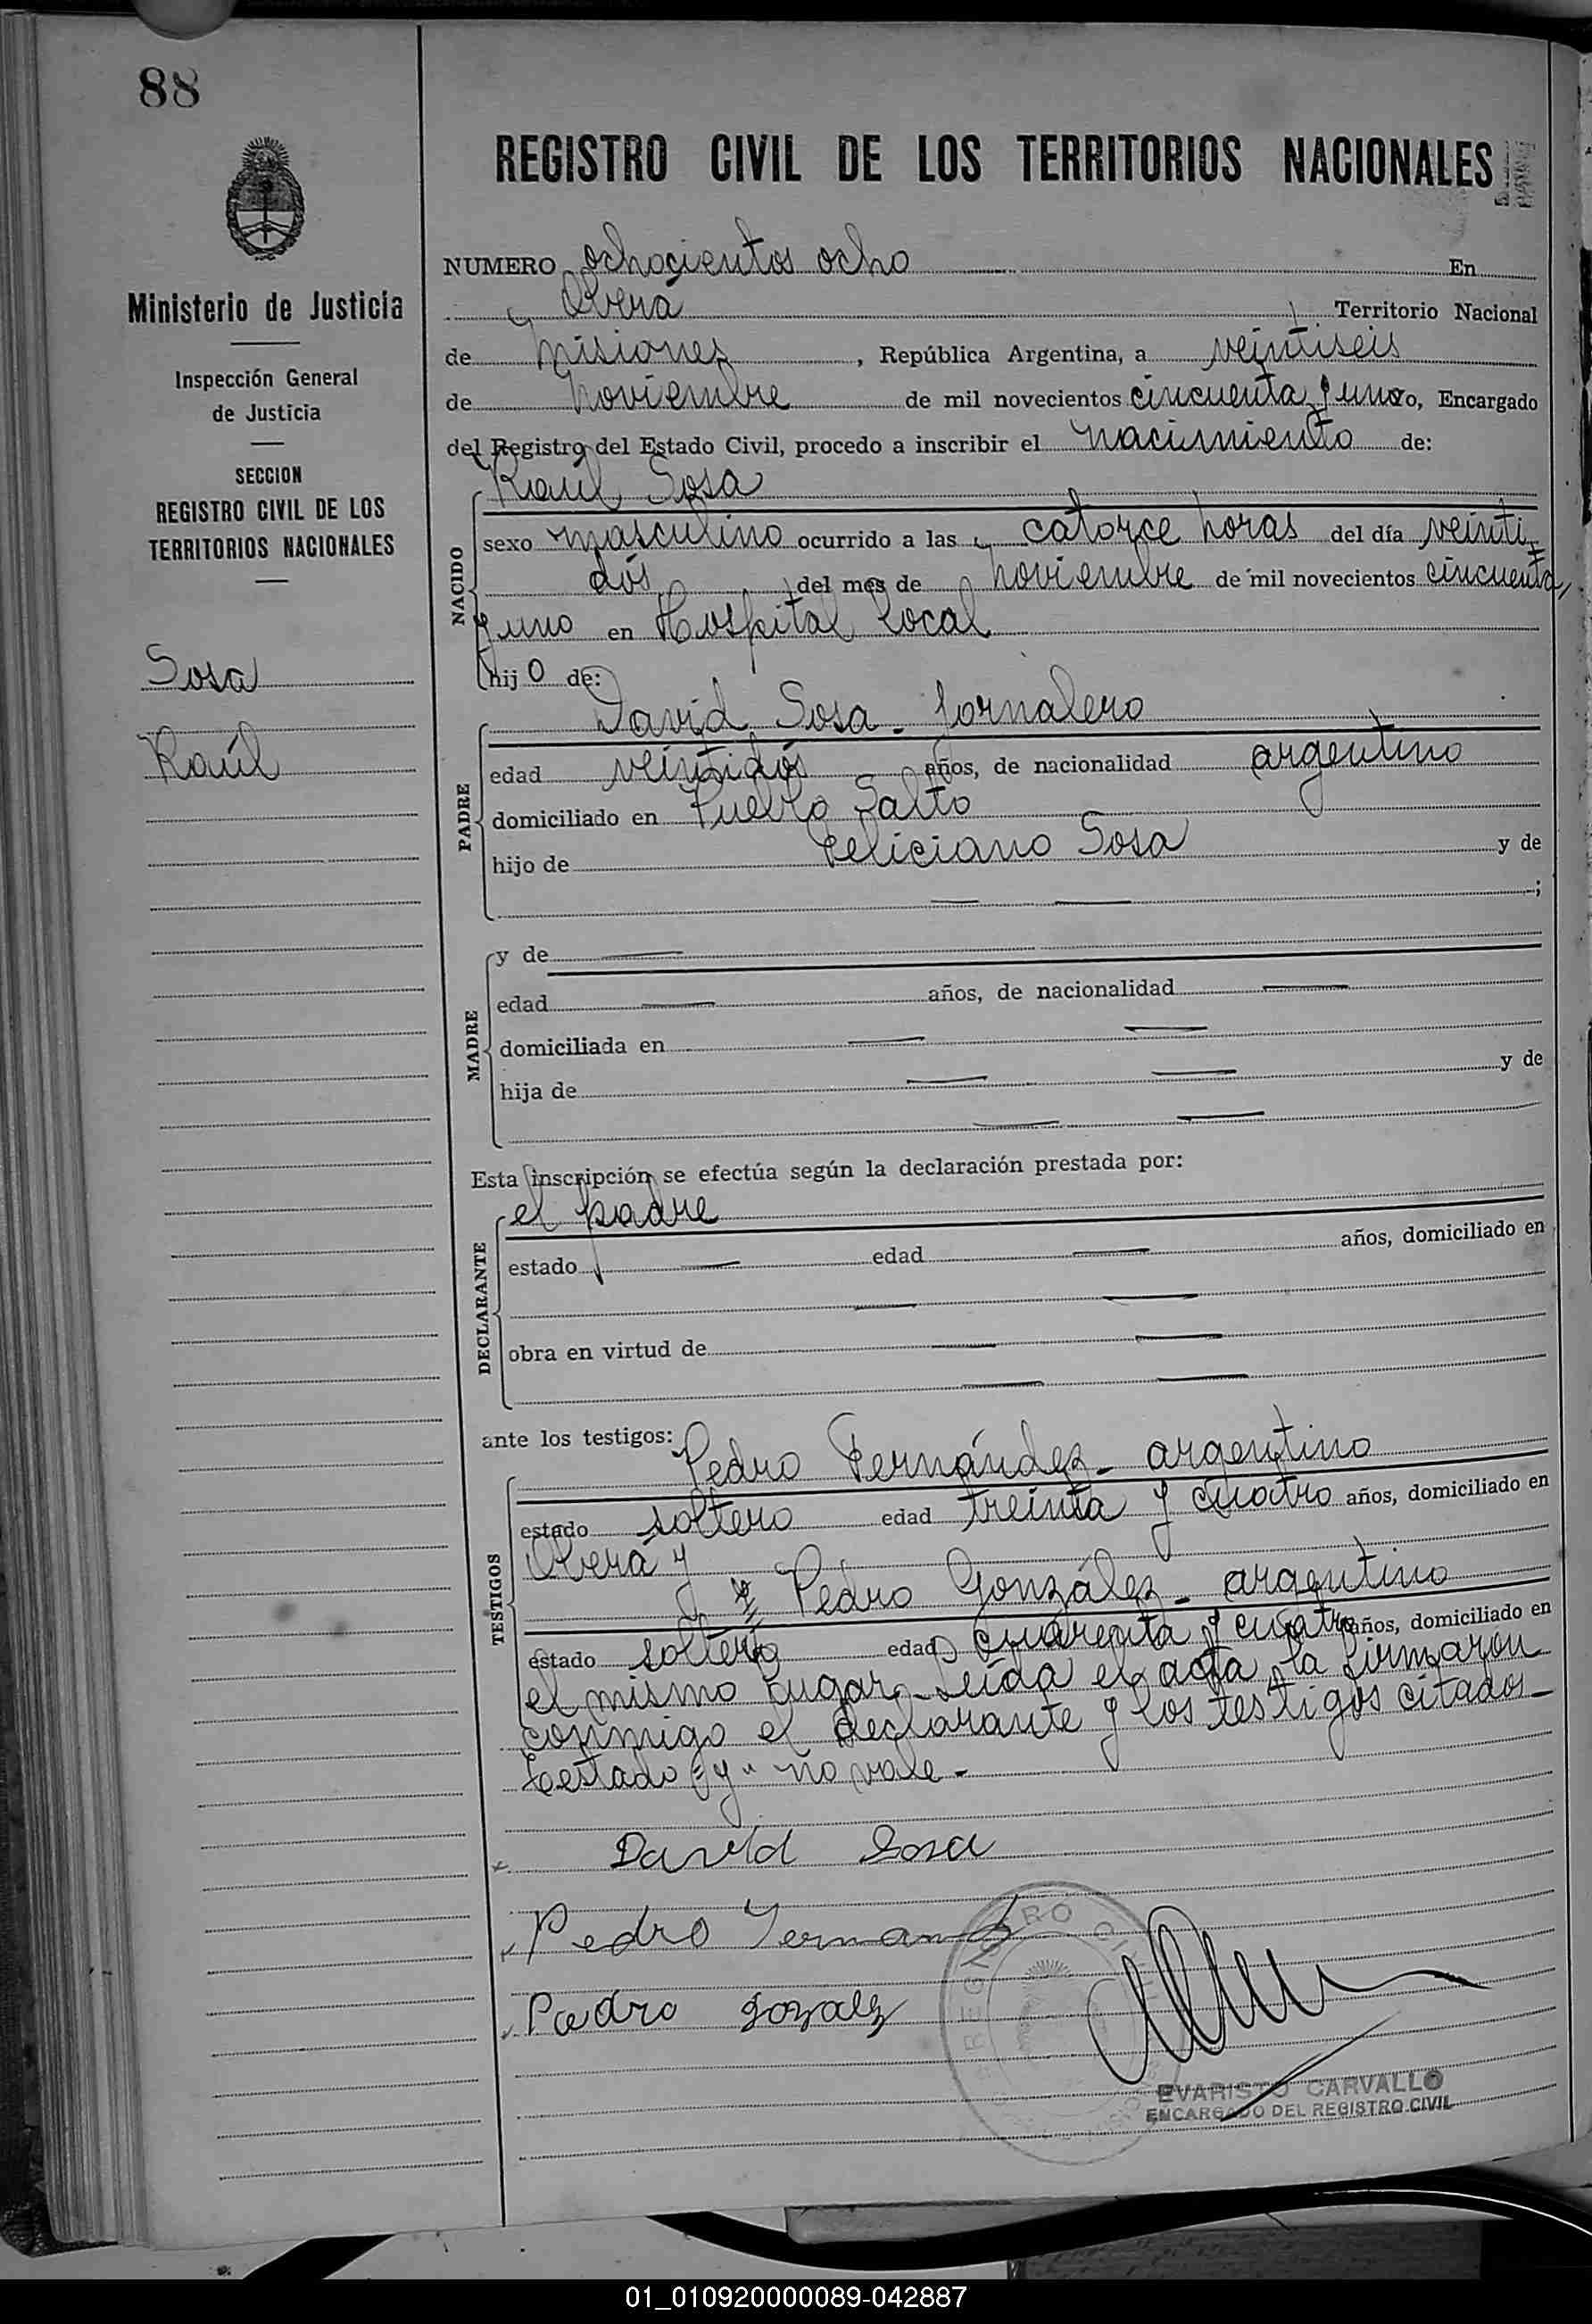 88
REGISTRO CIVIL DE LOS TERRITORIOS NACIONALES
Ministerio de Justicia
Inspección General
de Justicia
SECCION
REGISTRO CIVIL DE LOS
TERRITORIOS NACIONALES
Sosa
Raúl
NUMERO ochocientos ocho En
Oberá Territorio Nacional
de Misiones, República Argentina, a veintiseis
de Noviembre de mil novecientos cincuenta y uno, Encargado
del Registro del Estado Civil, procedo a inscribir el nacimiento de:
Raúl Sosa
NACIDO
sexo masculino ocurrido a las catorce horas del día veinti
dós del mes de noviembre de mil novecientos cincuenta
y uno en Hospital local
hijo de:
David Sosa - Jornalero
PADRE
edad veintidós años, de nacionalidad argentino
domiciliado en Puerto Salto
hijo de Feliciano Sosa y de
;
MADRE
y de
edad años, de nacionalidad
domiciliada en
hija de y de
Esta inscripción se efectúa según la declaración prestada por:
el padre
DECLARANTE
estado edad años, domiciliado en
obra en virtud de
ante los testigos:
Pedro Fernández - argentino
TESTIGOS
estado soltero edad treinta y cuatro años, domiciliado en
Oberá y
y Pedro González - argentino
estado soltero edad cuarenta y cuatro años, domiciliado en
el mismo lugar - Leída el acta, la firmaron
conmigo el declarante y los testigos citados -
testado "y" no vale -
David Sosa
Pedro Fernand
Pedro Gonzalez
REGISTRO CIVIL
EVARISTO CARVALLO
ENCARGADO DEL REGISTRO CIVIL
01_010920000089-042887